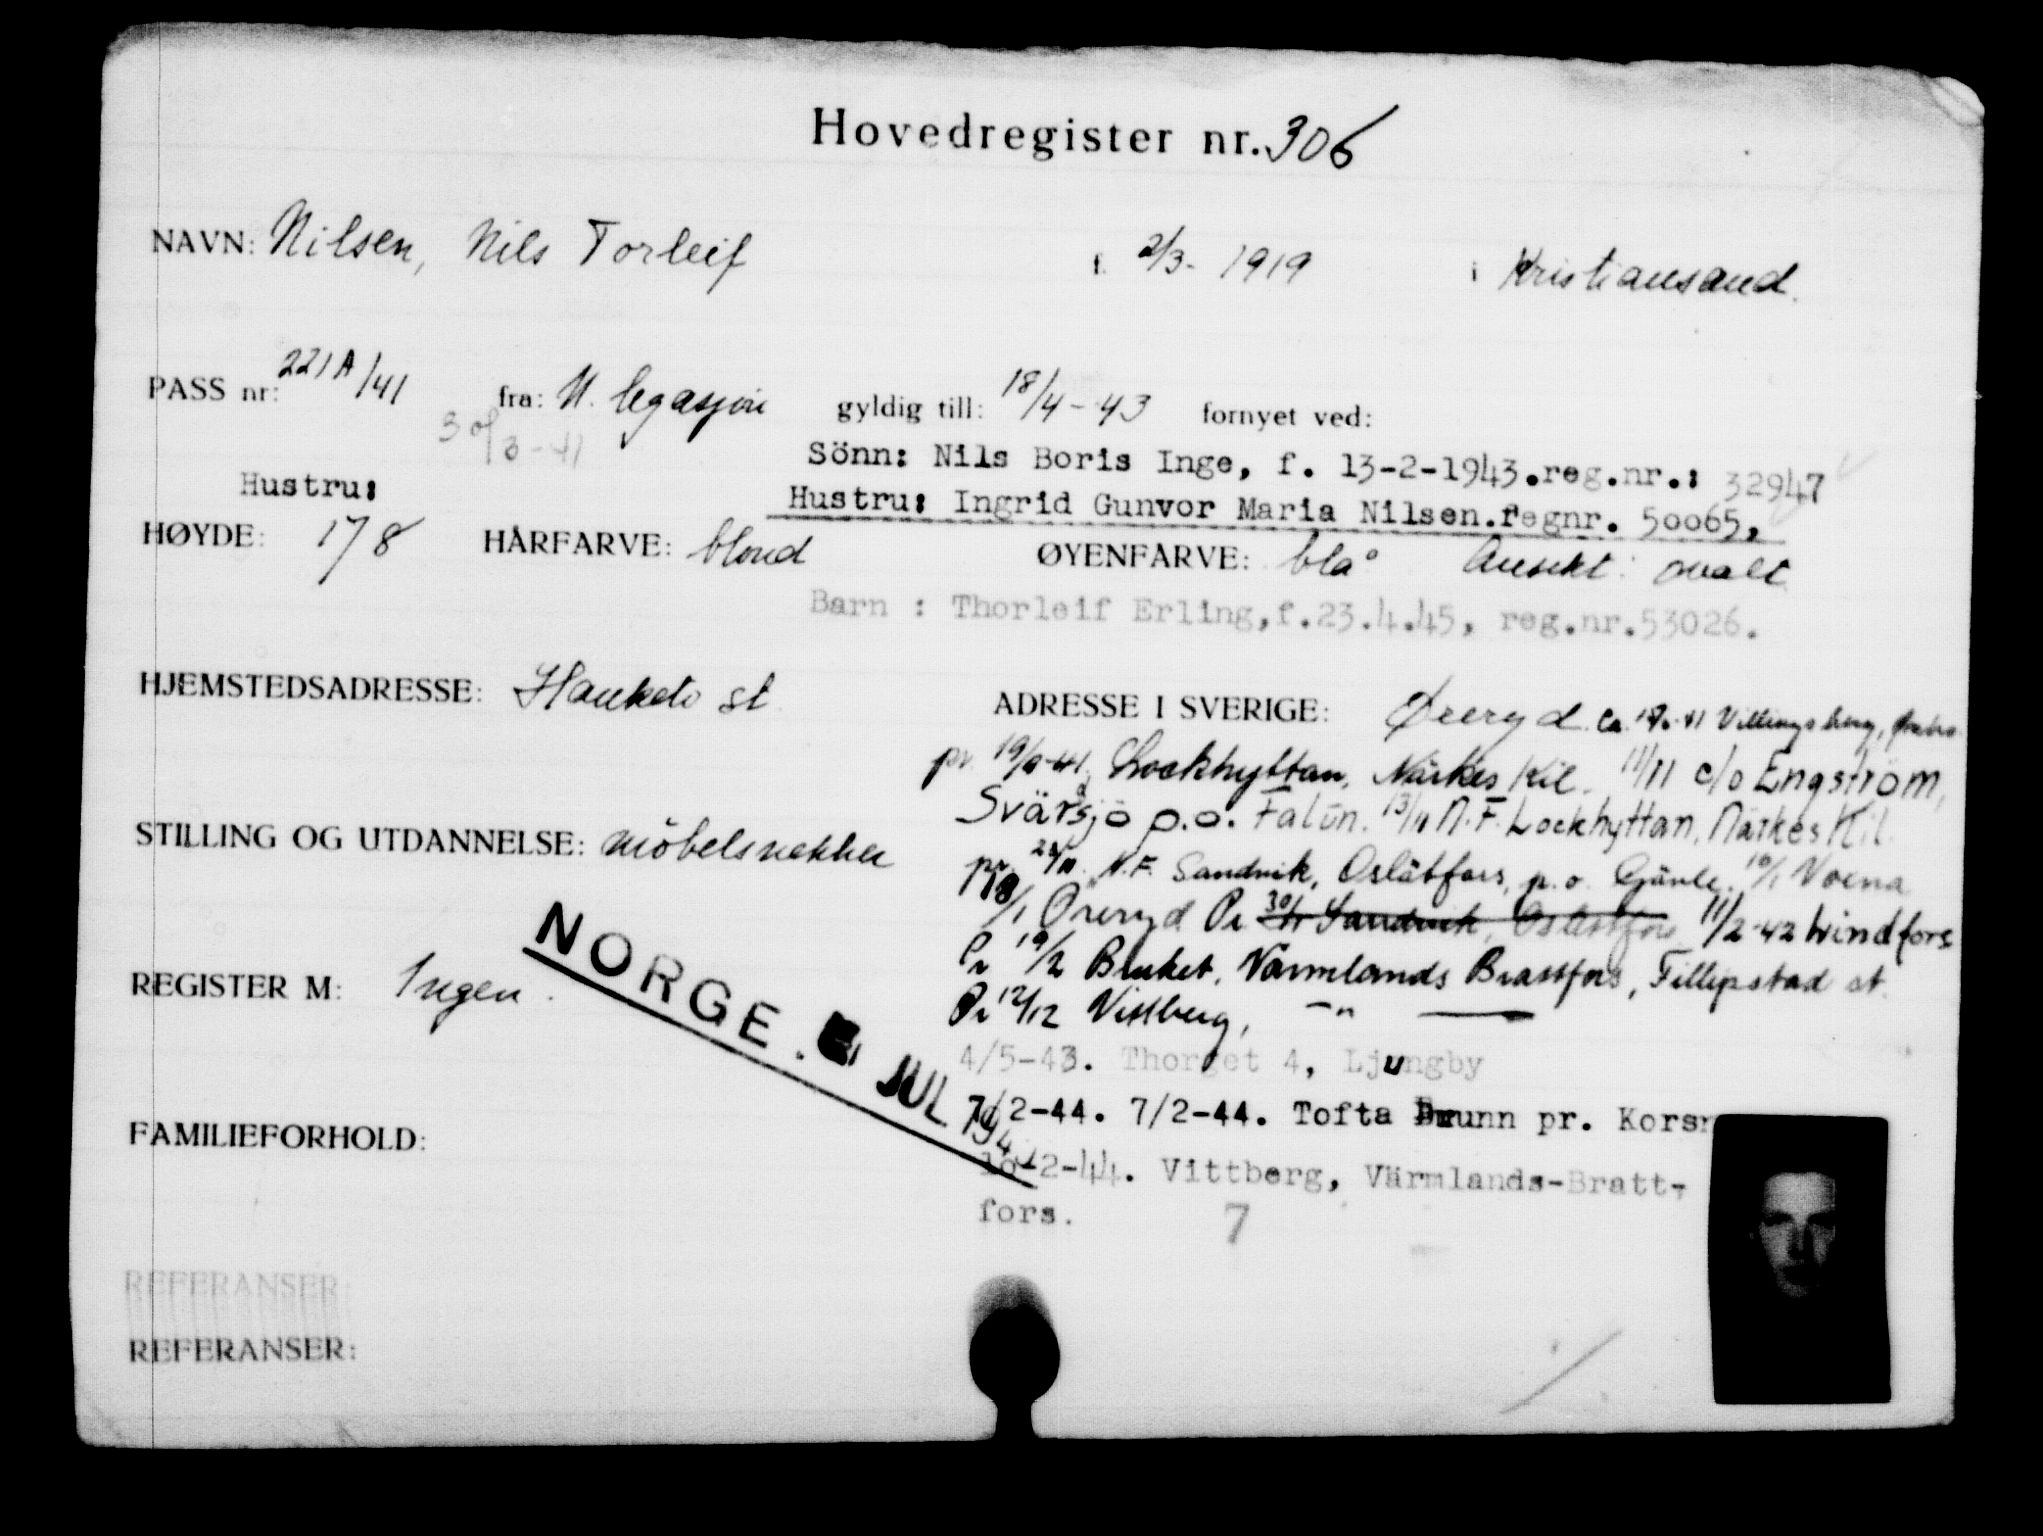 Hovedregister nr. 306
NAVN: Nilsen, Nils Torleif f. 2/3- 1919 i Kristiansand.
PASS nr: 221A/41 fra: N. legasjon gyldig till: 18/4-43 fornyet ved:
30/3-41
Sönn: Nils Boris Inge, f. 13-2-1943.reg.nr.: 32947
Hustru: Hustru: Ingrid Gunvor Maria Nilsen.Regnr. 50065,
HØYDE: 178 HÅRFARVE: blond ØYENFARVE: blå Ansikt: ovalt
Barn : Thorleif Erling,f.23.4.45, reg.nr.53026.
HJEMSTEDSADRESSE: Hauketo st. ADRESSE I SVERIGE: Øreryd. Villingsberg,
pr. Lockhyttan, Närkes Kil. 11/11 c/o Engström,
Svärdsjö p.o. Falun. 13/11 N.F. Lockhyttan, Närkes Kil.
STILLING OG UTDANNELSE: möbelsnekker
pr. N.F. Sandvik, Oslätfors, p.o. Gävle.
18/1 Öreryd Pr 30/1 Sandvik, Oslätfors 11/2-42
REGISTER M: Ingen.
Pr 19/2 Bruket, Värmlands Brattfors, Fillipstad st.
Pr 12/12 Vittberg, -"-
NORGE. JUL 194
4/5-43. Thorget 4, Ljungby
7/2-44. 7/2-44. Tofta Brunn pr. Korsn
FAMILIEFORHOLD:
2-44. Vittberg, Värmlands-Bratt-
fors.
7
REFERANSER:
REFERANSER: